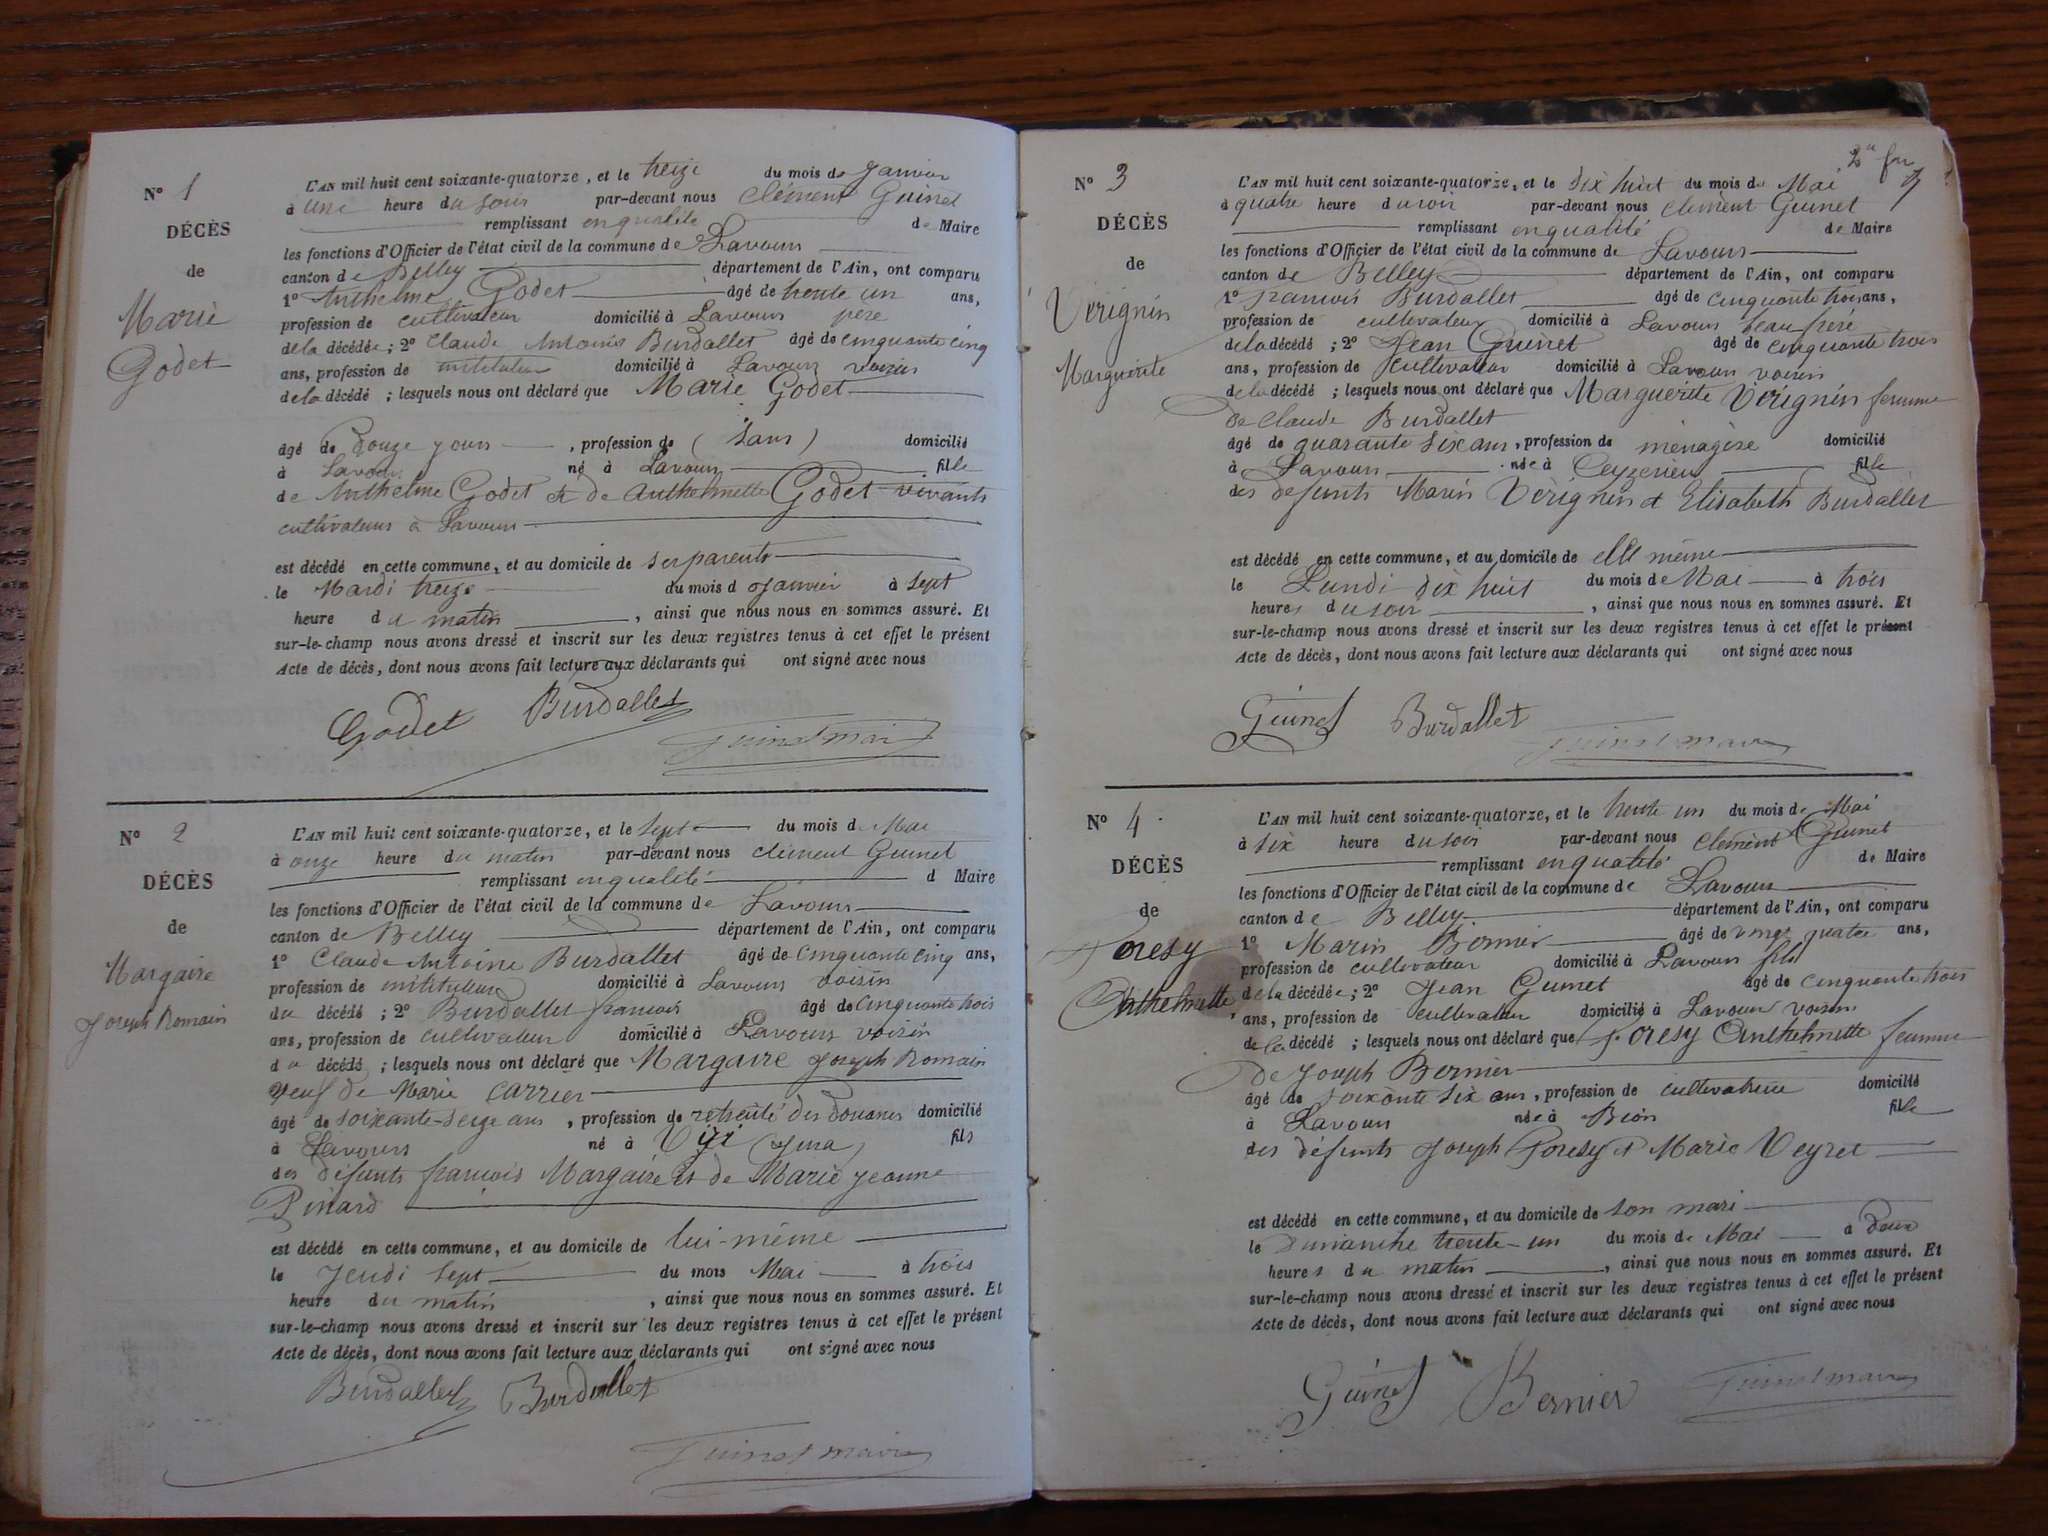 N° 1
DÉCÈS
de
Marie
Godet
L'AN mil huit cent soixante-quatorze, et le treize du mois de Janvier
à une heure du soir par-devant nous Clément Guinet
remplissant en qualité de Maire
les fonctions d'Officier de l'état civil de la commune de Lavours
canton de Belley département de l'Ain, ont comparu
1° Anthelme Godet âgé de trente un ans,
profession de cultivateur domicilié à Lavours père
de la décédée; 2° Claude Antoine Burdallet âgé de cinquante cinq
ans, profession de instituteur domicilié à Lavours voisin
de la décédé ; lesquels nous ont déclaré que Marie Godet
âgé de douze jours, profession de (sans) domicilié
à Lavours né à Lavours fille
de Anthelme Godet et de Anthelmette Godet vivants
cultivateurs à Lavours
est décédé en cette commune, et au domicile de ses parents
le Mardi treize du mois d Janvier à sept
heure du matin, ainsi que nous nous en sommes assuré. Et
sur-le-champ nous avons dressé et inscrit sur les deux registres tenus à cet effet le présent
Acte de décès, dont nous avons fait lecture aux déclarants qui ont signé avec nous
Godet Burdallet
Guinet maire
N° 2
DÉCÈS
de
Margaire
Joseph Romain
L'AN mil huit cent soixante-quatorze, et le sept du mois de Mai
à onze heure du matin par-devant nous Clément Guinet
remplissant en qualité d Maire
les fonctions d'Officier de l'état civil de la commune de Lavours
canton de Belley département de l'Ain, ont comparu
1° Claude Antoine Burdallet âgé de cinquante cinq ans,
profession de instituteur domicilié à Lavours voisin
du décédé ; 2° Burdallet françois âgé de cinquante trois
ans, profession de cultivateur domicilié à Lavours voisin
du décédé ; lesquels nous ont déclaré que Margaire Joseph Romain
veuf de Marie Carrier
âgé de soixante-seize ans, profession de retraité des Douanes domicilié
à Lavours né à (Jura) fils
des défunts françois Margaire et de Marie Jeanne
Pinard
est décédé en cette commune, et au domicile de lui-même
le Jeudi sept du mois Mai à trois
heure du matin, ainsi que nous nous en sommes assuré. Et
sur-le-champ nous avons dressé et inscrit sur les deux registres tenus à cet effet le présent
Acte de décès, dont nous avons fait lecture aux déclarants qui ont signé avec nous
Burdallet Burdallet
Guinet maire
N° 3
DÉCÈS
de
Vérignin
Marguerite
L'AN mil huit cent soixante-quatorze, et le dix huit du mois de Mai
à quatre heure du soir par-devant nous Clément Guinet
remplissant en qualité de Maire
les fonctions d'Officier de l'état civil de la commune de Lavours
canton de Belley département de l'Ain, ont comparu
1° françois Burdallet âgé de cinquante trois ans,
profession de cultivateur domicilié à Lavours beau-frère
de la décédé ; 2° Jean Guinet âgé de cinquante trois
ans, profession de cultivateur domicilié à Lavours voisin
de la décédé ; lesquels nous ont déclaré que Marguerite Vérignin femme
de Claude Burdallet
âgé de quarante six ans, profession de ménagère domicilié
à Lavours née à Ceyzerieu fille
des défunts Marin Vérignin et Elisabeth Burdallet
est décédé en cette commune, et au domicile de elle même
le Lundi dix huit du mois de Mai à trois
heures du soir, ainsi que nous nous en sommes assuré. Et
sur-le-champ nous avons dressé et inscrit sur les deux registres tenus à cet effet le présent
Acte de décès, dont nous avons fait lecture aux déclarants qui ont signé avec nous
Guinet Burdallet
Guinet maire
N° 4
DÉCÈS
de
Poresy
Anthelmette
L'AN mil huit cent soixante-quatorze, et le trente un du mois de Mai
à six heure du soir par-devant nous Clément Guinet
remplissant en qualité de Maire
les fonctions d'Officier de l'état civil de la commune de Lavours
canton de Belley département de l'Ain, ont comparu
1° Marin Bernier âgé de vingt quatre ans,
profession de cultivateur domicilié à Lavours fils
de la décédée; 2° Jean Guinet âgé de cinquante trois
ans, profession de cultivateur domicilié à Lavours voisin
de la décédé ; lesquels nous ont déclaré que Poresy Anthelmette femme
de Joseph Bernier
âgé de soixante six ans, profession de cultivatrice domicilié
à Lavours née à Béon fille
des défunts Joseph Poresy et Marie Veyret
est décédé en cette commune, et au domicile de son mari
le Dimanche trente-un du mois de Mai à deux
heures du matin, ainsi que nous nous en sommes assuré. Et
sur-le-champ nous avons dressé et inscrit sur les deux registres tenus à cet effet le présent
Acte de décès, dont nous avons fait lecture aux déclarants qui ont signé avec nous
Guinet Bernier Guinet maire